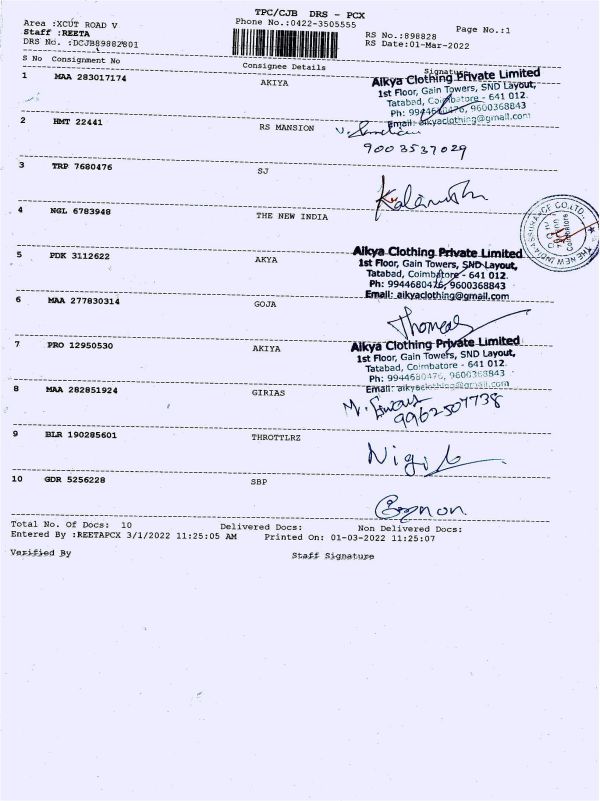 TPC/CJB DRS - PCX
Area :XCUT ROAD V
Phone No.:0422-3505555
Page No.:1
Staff :REETA
RS No.:898828
DRS No. :DCJB89882801
RS Date:01-Mar-2022
S No Consignment No Consignee Details Signature
1 MAA 283017174 AKIYA
Aikya Clothing Private Limited
1st Floor, Gain Towers, SND Layout,
Tatabad, Coimbatore - 641 012.
Ph: 9944680476, 9600368843
Email: aikyaclothing@gmail.com
2 HMT 22441 RS MANSION
9003537029
3 TRP 7680476 SJ
4 NGL 6783948 THE NEW INDIA
5 PDK 3112622 AKYA
Aikya Clothing Private Limited
1st Floor, Gain Towers, SND Layout,
Tatabad, Coimbatore - 641 012.
Ph: 9944680476, 9600368843
Email: aikyaclothing@gmail.com
6 MAA 277830314 GOJA
Thomas
7 PRO 12950530 AKIYA
Aikya Clothing Private Limited
1st Floor, Gain Towers, SND Layout,
Tatabad, Coimbatore - 641 012.
Ph: 9944680476, 9600368843
Email: aikyaclothing@gmail.com
8 MAA 282851924 GIRIAS
9962507738
9 BLR 190285601 THROTTLRZ
10 GDR 5256228 SBP
Total No. Of Docs: 10 Delivered Docs: Non Delivered Docs:
Entered By :REETAPCX 3/1/2022 11:25:05 AM Printed On: 01-03-2022 11:25:07
Verified By Staff Signature